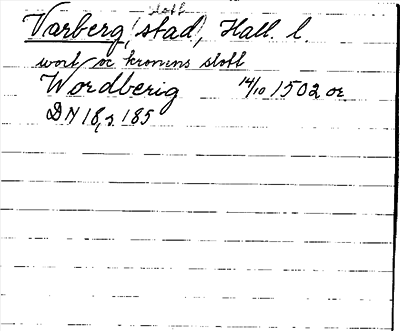 slott
Varberg (stad), Hall. l.
wort oc kronens slott
Wordberig 14/10 1502 or
DN 18, s. 185